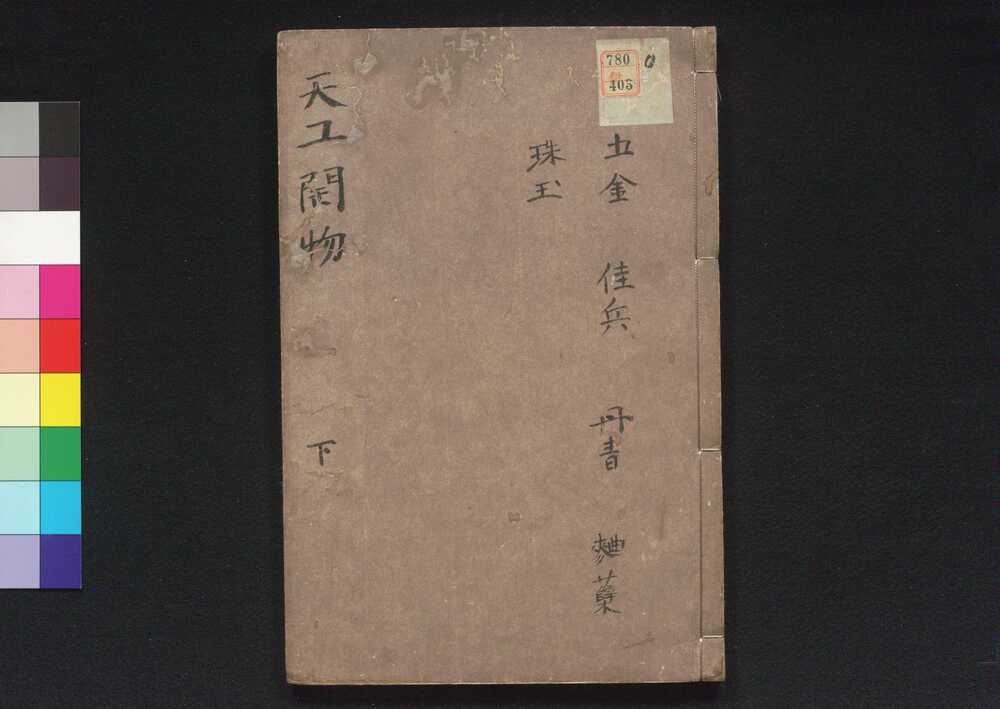 780
405
五金 佳兵 丹青 麹蘗
珠玉
天工開物 下